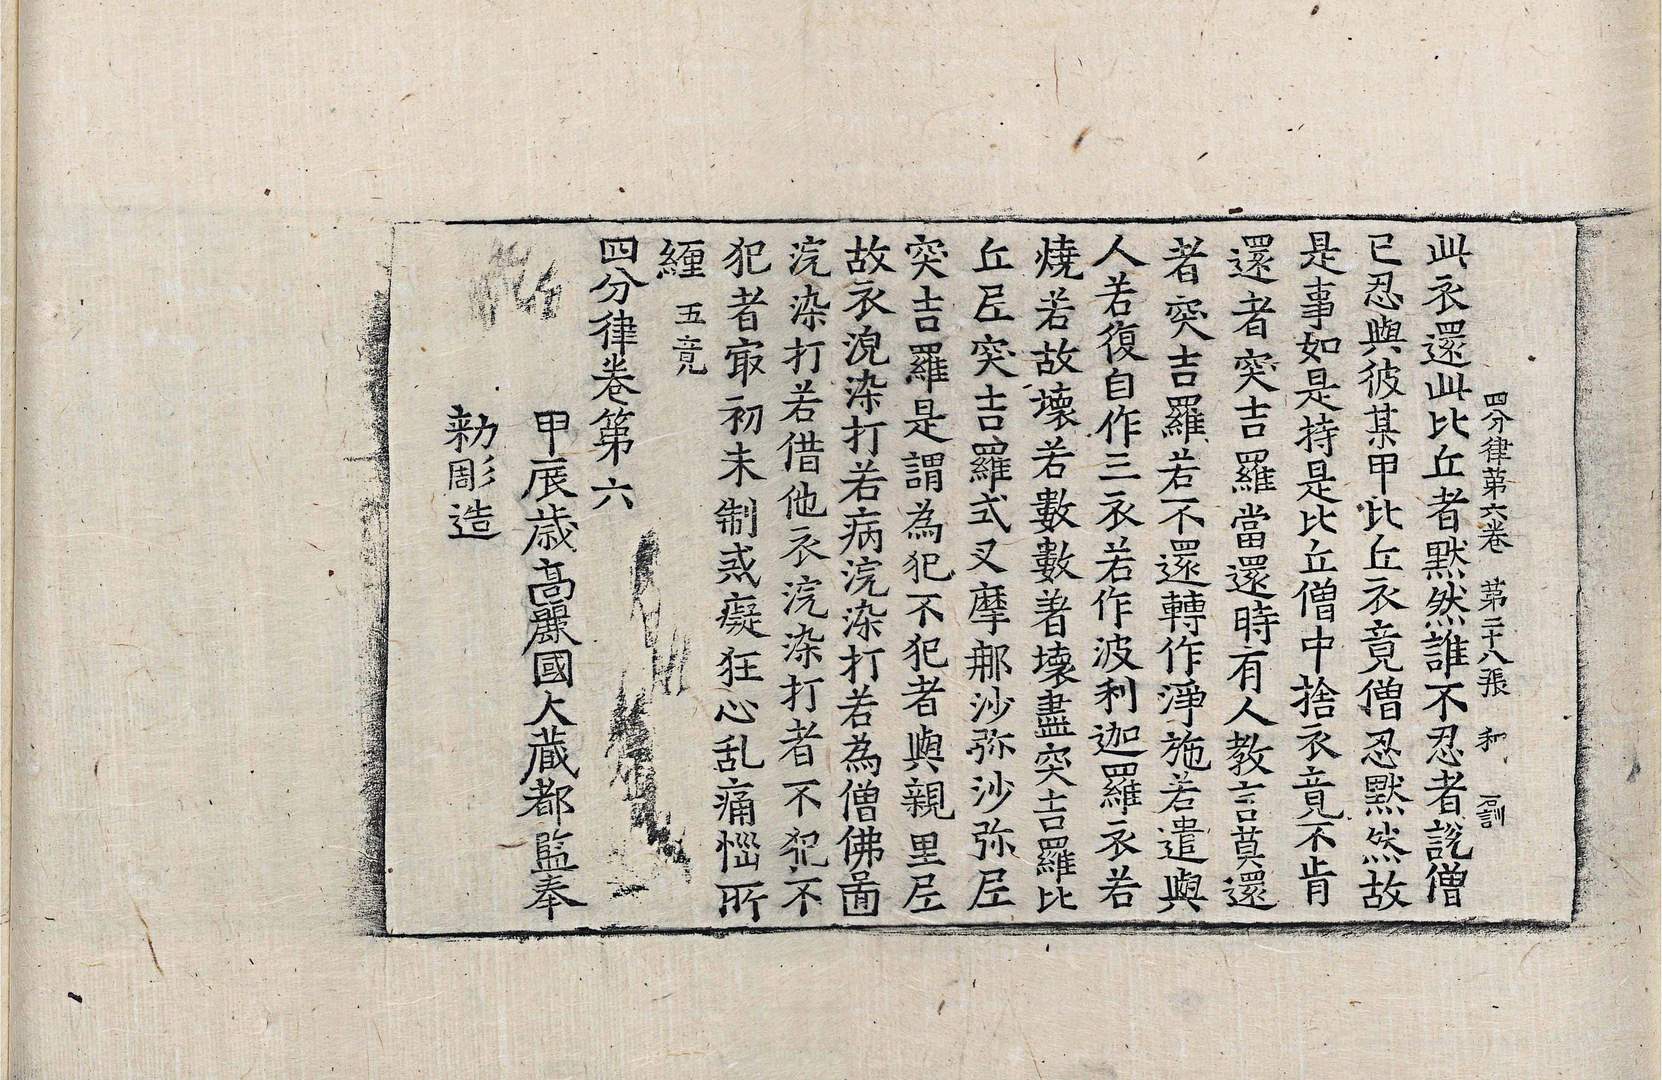 四分律第六卷 第二十八張 和 訓
此衣還此比丘者默然誰不忍者說僧
已忍與彼某甲比丘衣竟僧忍默然故
是事如是持是比丘僧中捨衣竟不肯
還者突吉羅當還時有人教言莫還
者突吉羅若不還轉作淨施若遣與
人若復自作三衣若作波利迦羅衣若
燒若故壞若數數著壞盡突吉羅比
丘尼突吉羅式叉摩那沙弥沙弥尼
突吉羅是謂為犯不犯者與親里尼
故衣浣染打若病浣染打若為僧佛圖
浣染打若借他衣浣染打者不犯不
犯者㝡初未制惑癡狂心乱痛惱所
纏 五竟
四分律卷第六
甲辰歲高麗國大藏都監奉
勑彫造